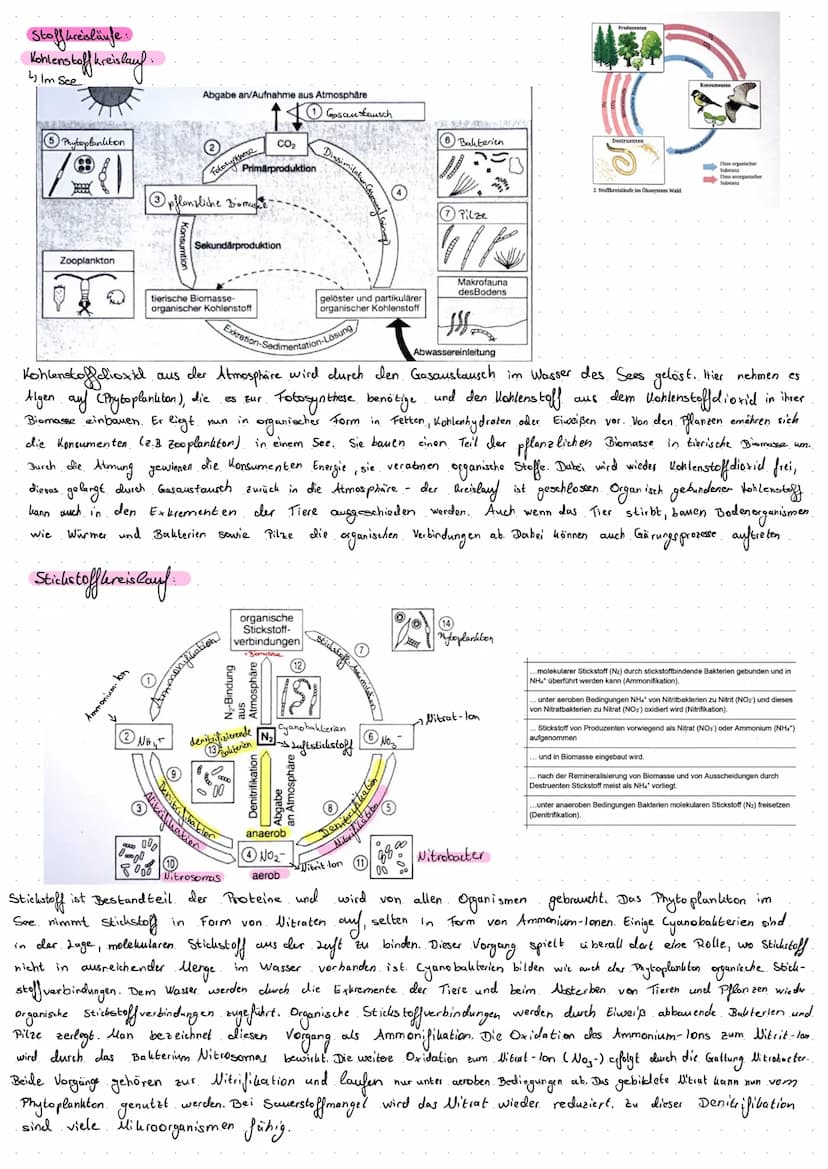 Stoffkreisläufe:
Kohlenstoffkreislauf:
↳ Im See
Produzenten
Konsumenten
Destruenten
Fluss organischer Substanz
Fluss anorganischer Substanz
2 Stoffkreisläufe im Ökosystem Wald
Abgabe an/Aufnahme aus Atmosphäre
1 Gasaustausch
CO₂
2 Fotosynthese
Primärproduktion
3 pflanzliche Biomasse
4
5 Phytoplankton
6 Bakterien
7 Pilze
Konsumtion
Sekundärproduktion
Zooplankton
Makrofauna
des Bodens
tierische Biomasse-
organischer Kohlenstoff
gelöster und partikulärer
organischer Kohlenstoff
Exkretion-Sedimentation-Lösung
Abwassereinleitung
Kohlenstoffdioxid aus der Atmosphäre wird durch den Gasaustausch im Wasser des Sees gelöst. Hier nehmen es
Algen auf (Phytoplankton), die es zur Fotosynthese benötige und den Kohlenstoff aus dem Kohlenstoffdioxid in ihrer
Biomasse einbauen. Er liegt nun in organischer Form in Fetten, Kohlenhydraten oder Eiweißen vor. Von den Pflanzen ernähren sich
die Konsumenten (z.B. Zooplankton) in einem See. Sie bauen einen Teil der pflanzlichen Biomasse in tierische Biomasse um.
Durch die Atmung gewinnen die Konsumenten Energie, sie veratmen organische Stoffe. Dabei wird wieder Kohlenstoffdioxid frei,
dieses gelangt durch Gasaustausch zurück in die Atmosphäre - der Kreislauf ist geschlossen. Organisch gebundener Kohlenstoff
kann auch in den Exkrementen der Tiere ausgeschieden werden. Auch wenn das Tier stirbt, bauen Bodenorganismen
wie Würmer und Bakterien sowie Pilze die organischen Verbindungen ab. Dabei können auch Gärungsprozesse auftreten
Stickstoffkreislauf:
organische
Stickstoff-
verbindungen
Biomasse
14 Phytoplankton
1 Ammonifikation
7
12
N₂-Bindung
aus
Atmosphäre
Ammonium-Ion
Cyanobakterien
2 NH₄⁺
denitrifizierende
13 Bakterien
N₂
→ Luftstickstoff
6 NO₃⁻
Nitrat-Ion
9 Denitrifikation
3 Nitrifikation
Denitrifikation
Abgabe
an Atmosphäre
8 Denitrifikation
5 Nitrifikation
anaerob
4 NO₂⁻
Nitrit-Ion
aerob
10 Nitrosomas
11 Nitrobacter
...molekularer Stickstoff (N₂) durch stickstoffbindende Bakterien gebunden und in
NH₄⁺ überführt werden kann (Ammonifikation).
... unter aeroben Bedingungen NH₄⁺ von Nitritbakterien zu Nitrit (NO₂⁻) und dieses
von Nitratbakterien zu Nitrat (NO₃⁻) oxidiert wird (Nitrifikation).
... Stickstoff von Produzenten vorwiegend als Nitrat (NO₃⁻) oder Ammonium (NH₄⁺)
aufgenommen
... und in Biomasse eingebaut wird.
... nach der Remineralisierung von Biomasse und von Ausscheidungen durch
Destruenten Stickstoff meist als NH₄⁺ vorliegt.
...unter anaeroben Bedingungen Bakterien molekularen Stickstoff (N₂) freisetzen
(Denitrifikation).
Stickstoff ist Bestandteil der Proteine und wird von allen Organismen gebraucht. Das Phytoplankton im
See nimmt Stickstoff in Form von Nitraten auf, selten in Form von Ammonium-Ionen. Einige Cyanobakterien sind
in der Lage, molekularen Stickstoff aus der Luft zu binden. Dieser Vorgang spielt überall dort eine Rolle, wo Stickstoff
nicht in ausreichender Menge im Wasser vorhanden ist. Cyanobakterien bilden wie auch das Phytoplankton organische Stick-
stoffverbindungen. Dem Wasser werden durch die Exkremente der Tiere und beim Absterben von Tieren und Pflanzen wieder
organische Stickstoffverbindungen zugeführt. Organische Stickstoffverbindungen werden durch Eiweiß abbauende Bakterien und
Pilze zerlegt. Man bezeichnet diesen Vorgang als Ammonifikation. Die Oxidation des Ammonium-Ions zum Nitrit-Ion
wird durch das Bakterium Nitrosomas bewirkt. Die weitere Oxidation zum Nitrat-Ion (NO₃-) erfolgt durch die Gattung Nitrobacter.
Beide Vorgänge gehören zur Nitrifikation und laufen nur unter aeroben Bedingungen ab. Das gebildete Nitrat kann nun vom
Phytoplankton genutzt werden. Bei Sauerstoffmangel wird das Nitrat wieder reduziert. Zu dieser Denitrifikation
sind viele Mikroorganismen fähig.